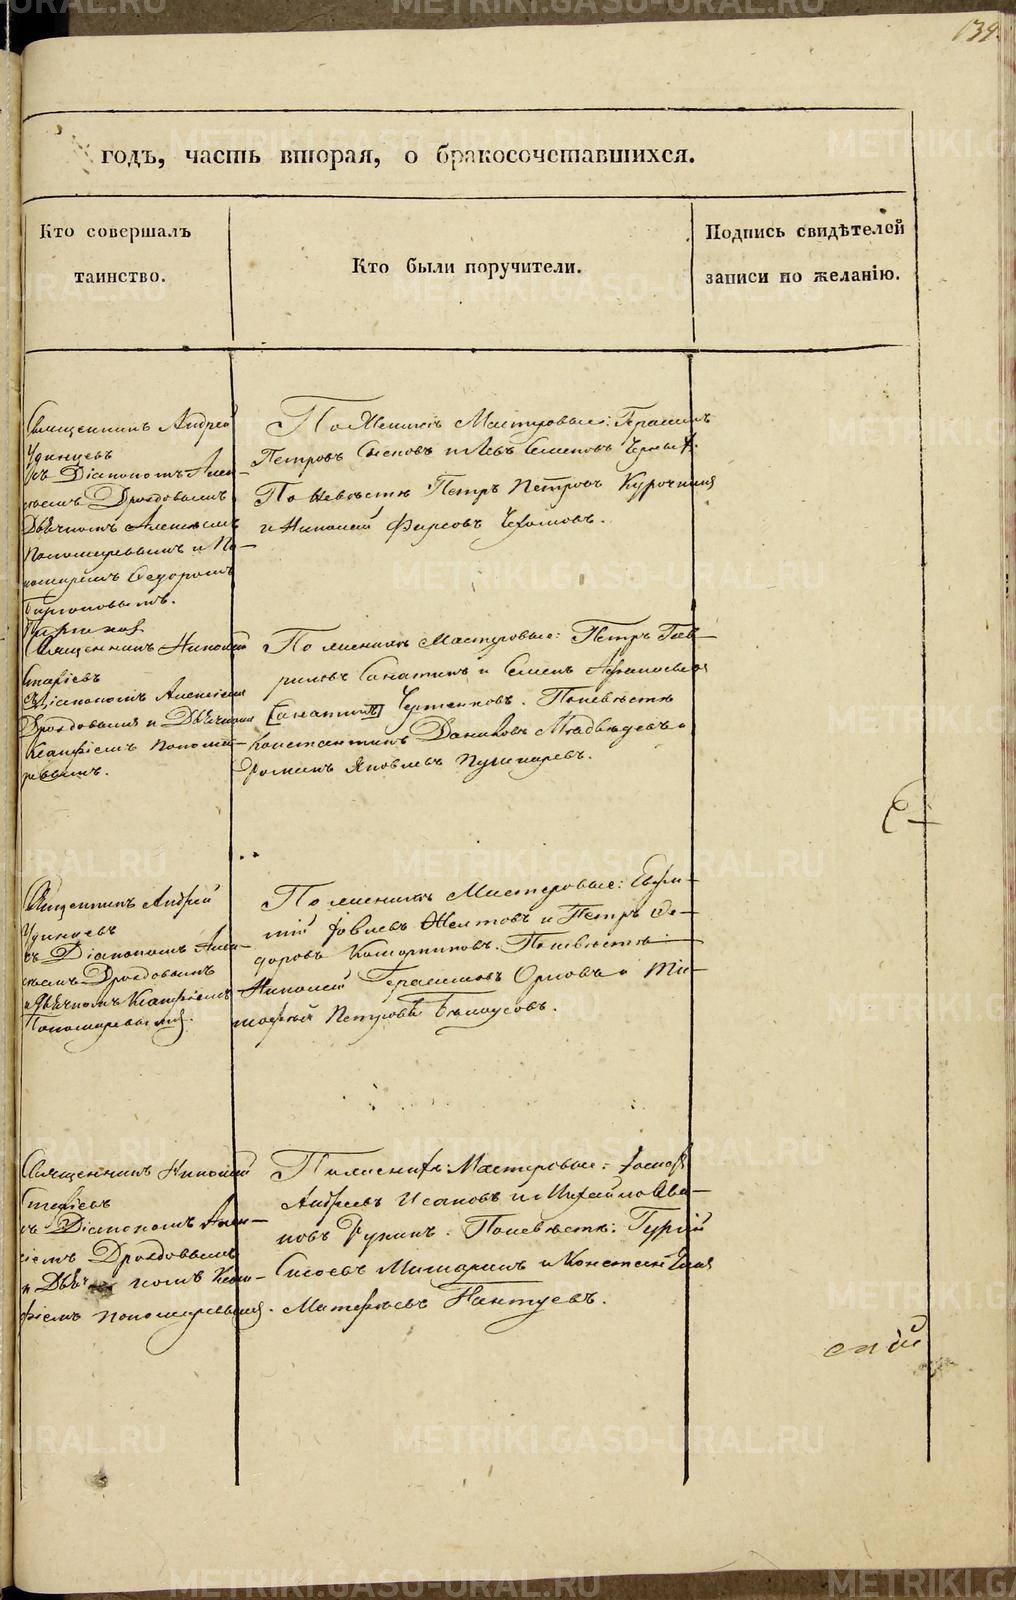 139.
годъ, часть вторая, о бракосочетавшихся.
Кто совершалъ
таинство.
Кто были поручители.
Подпись свидѣтелей
записи по желанію.
Священникъ Андрей
Удинцевъ
съ Діакономъ Алек-
сѣемъ Дроздовымъ
Дьячкомъ Алексѣемъ
Пономаревымъ и По-
номаремъ Ѳедоромъ
По Женихѣ Мастеровые: Герасимъ
Петровъ и Левъ Семеновъ
По Невѣстѣ Петръ Петровъ Курочкинъ
и Николай Фирсовъ
Священникъ Николай
съ Діакономъ Алексѣемъ
Дроздовымъ и Дьячкомъ
Ксанфіемъ Понома-
ревымъ.
По женихѣ Мастеровые: Петръ Гав-
риловъ и Семенъ Афанасьевъ
Чертенковъ. По невѣстѣ
Константинъ Даниловъ Медвѣдевъ и
Романъ Яковлевъ Пушкаревъ.
Священникъ Андрей
Удинцевъ
съ Діакономъ Алек-
сѣемъ Дроздовымъ
и Дьячкомъ Ксанфіемъ
Пономаревымъ.
По женихѣ Мастеровые: Евфи-
мій Желтовъ и Петръ Ѳе-
доровъ. По невѣстѣ
Николай Герасимовъ Орловъ и Ти-
мофей Петровъ Бѣлоусовъ.
Священникъ Николай
съ Діакономъ Алек-
сѣемъ Дроздовымъ
и Дьячкомъ Ксан-
фіемъ Пономаревымъ.
По женихѣ: Мастеровые: Іосифъ
Андреевъ Исаковъ и Михайло Ива-
новъ. По невѣстѣ: Гурій
Сысоевъ и Константинъ
Матвѣевъ Пантуевъ.
METRIKI.GASO-URAL.RU